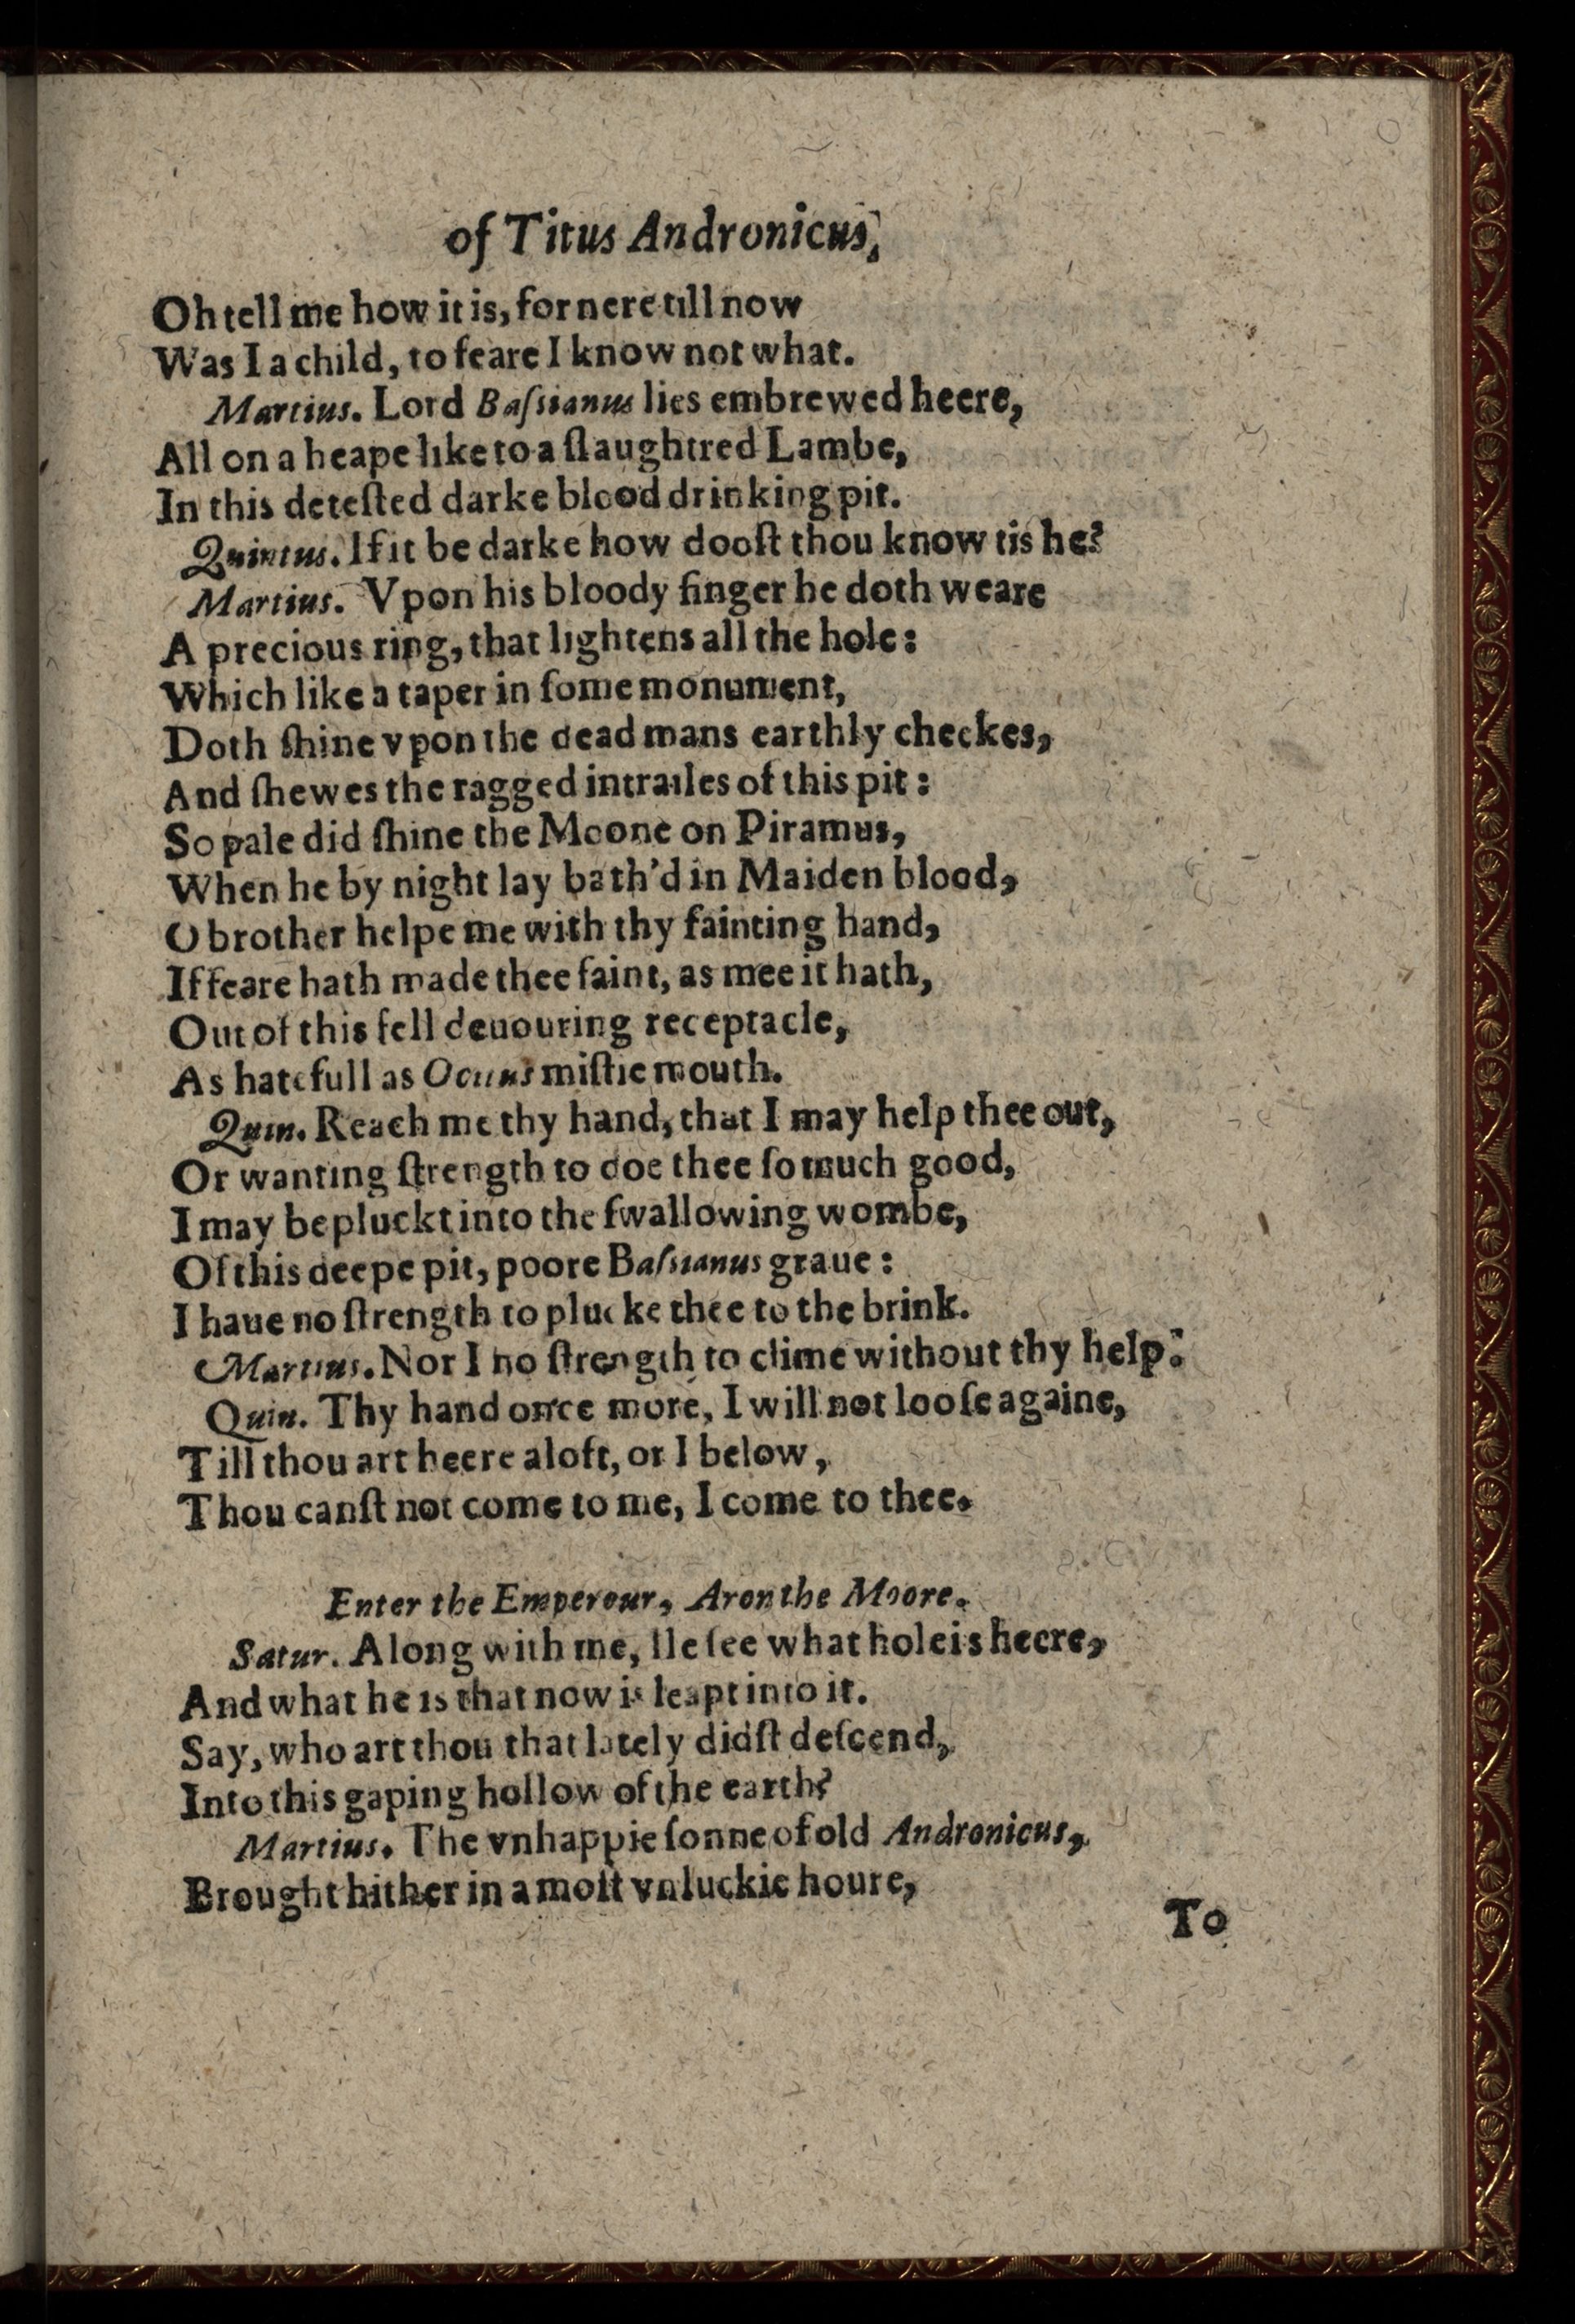 of Titus Andronicus,
Oh tell me how it is, for nere till now
Was I a child, to feare I know not what.
Martius. Lord Baſsianus lies embrewed heere,
All on a heape like to a ſlaughtred Lambe,
In this deteſted darke blood drinking pit.
Quintus. If it be darke how dooſt thou know tis he?
Martius. Vpon his bloody finger he doth weare
A precious ring, that lightens all the hole:
Which like a taper in ſome monument,
Doth ſhine vpon the dead mans earthly cheekes,
And ſhewes the ragged intrailes of this pit:
So pale did ſhine the Moone on Piramus,
When he by night lay bath'd in Maiden blood,
O brother helpe me with thy fainting hand,
If feare hath made thee faint, as mee it hath,
Out of this fell deuouring receptacle,
As hatefull as Ocitus miſtie mouth.
Quin. Reach me thy hand, that I may help thee out,
Or wanting ſtrength to doe thee ſo much good,
I may be pluckt into the ſwallowing wombe,
Of this deepe pit, poore Baſsianus graue:
I haue no ſtrength to plucke thee to the brink.
Martius. Nor I no ſtrength to clime without thy help.
Quin. Thy hand once more, I will not looſe againe,
Till thou art heere aloft, or I below,
Thou canſt not come to me, I come to thee.
Enter the Emperour, Aron the Moore.
Satur. Along with me, Ile ſee what hole is heere,
And what he is that now is leapt into it.
Say, who art thou that lately didſt deſcend,
Into this gaping hollow of the earth?
Martius. The vnhappie ſonne of old Andronicus,
Brought hither in a moſt vnluckie houre,
To